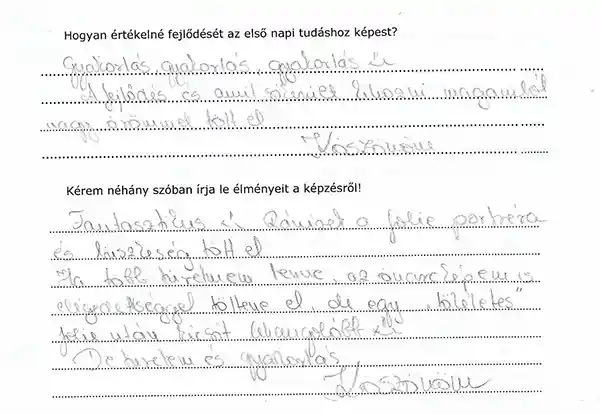 Hogyan értékelné fejlődését az első napi tudáshoz képest?
Gyakorlás, gyakorlás, gyakorlás
A fejlődés és amit sikerült kihozni magamból
nagy örömmel tölt el
Köszönöm
Kérem néhány szóban írja le élményeit a képzésről!
Fantasztikus a portréra
és büszkeség tölt el
Ha több türelmem lenne, az önarcképem is
elégedettséggel töltene el, de egy "tökéletes"
után kicsit
De türelem és gyakorlás
Köszönöm